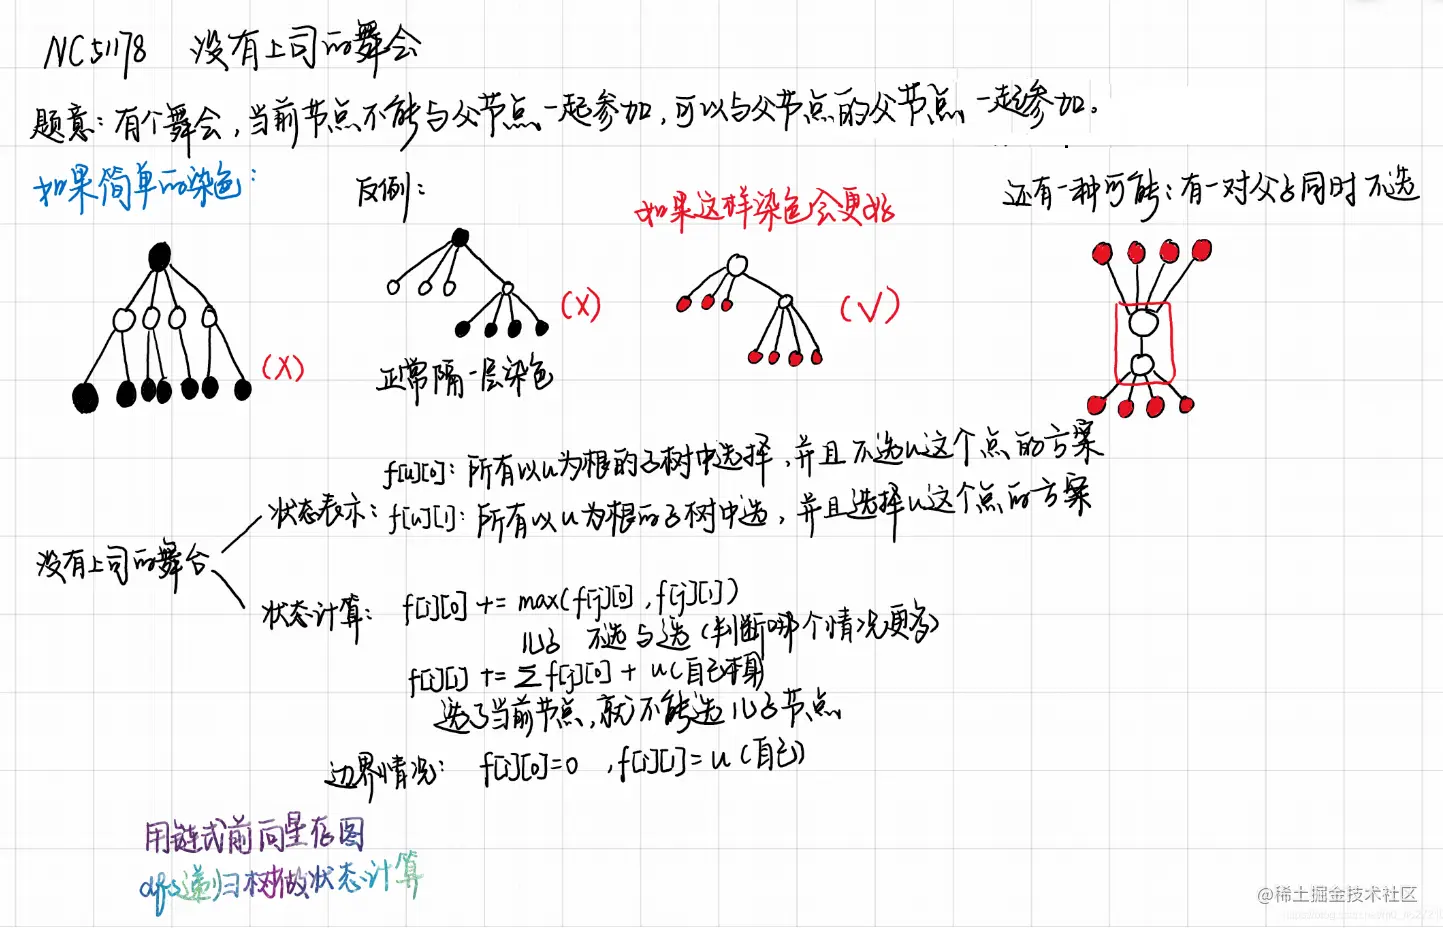 NC51178 没有上司的舞会
题意：有个舞会，当前节点不能与父节点一起参加，可以与父节点的父节点一起参加。
如果简单的染色：
反例：
如果这样染色会更好
还有一种可能：有一对父子同时不选
(X)
(X)
(√)
正常隔一层染色
f[u][0]：所有以u为根的子树中选择，并且不选u这个点的方案
状态表示：f[u][1]：所有以u为根的子树中选，并且选择u这个点的方案
没有上司的舞会
状态计算：f[i][0] += max(f[j][0], f[j][1])
儿子 不选与选（判断哪个情况更多）
f[i][1] += Σ f[j][0] + u（自己本身）
选了当前节点，就不能选儿子节点
边界情况：f[i][0]=0 ，f[i][1]=u（自己）
用链式前向星存图
dfs递归树做状态计算
@稀土掘金技术社区